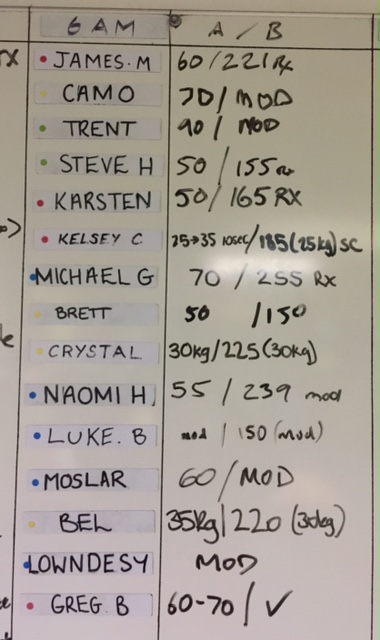 6 AM A / B
RX JAMES. M 60/221 Rx
CAMO 70/MOD
TRENT 90 / MOD
STEVE H 50 / 155 rx
KARSTEN 50/165 RX
KELSEY C 25→35 10sec/185(25kg) SC
MICHAEL G 70 / 255 Rx
BRETT 50 /150
CRYSTAL 30kg/225(30kg)
NAOMI H 55 / 239 mod
LUKE. B mod / 150 (mod)
MOSLAR 60/MOD
BEL 35kg/220 (30kg)
LOWNDESY MOD
GREG. B 60-70/✓